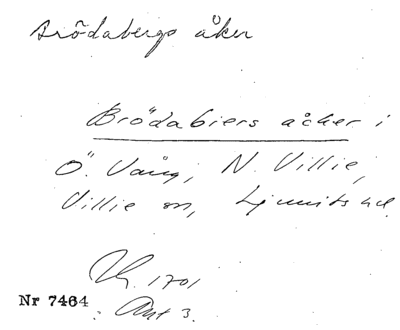 Brödabergs åker
Brödabiers acker i
Ö. Vång, N. Villie,
Villie sn, Ljunits hd.
1701
Nr 7464
Akt 3.